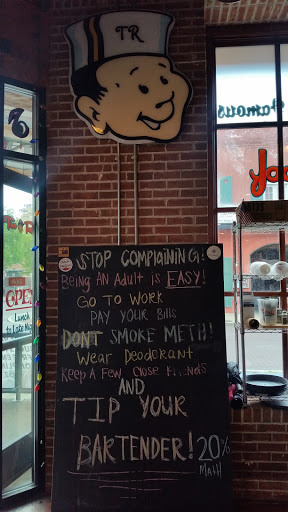 TR
famous
OPEN
Lunch
STOP COMPLAINING!
BEING AN ADULT is EASY!
GO TO WORK
PAY YOUR Bills
DONT SMOKE METH!
Wear Deodorant
KEEP A FEW CLOSE FRIENDS
AND
TIP YOUR
BARTENDER! 20%
MATH